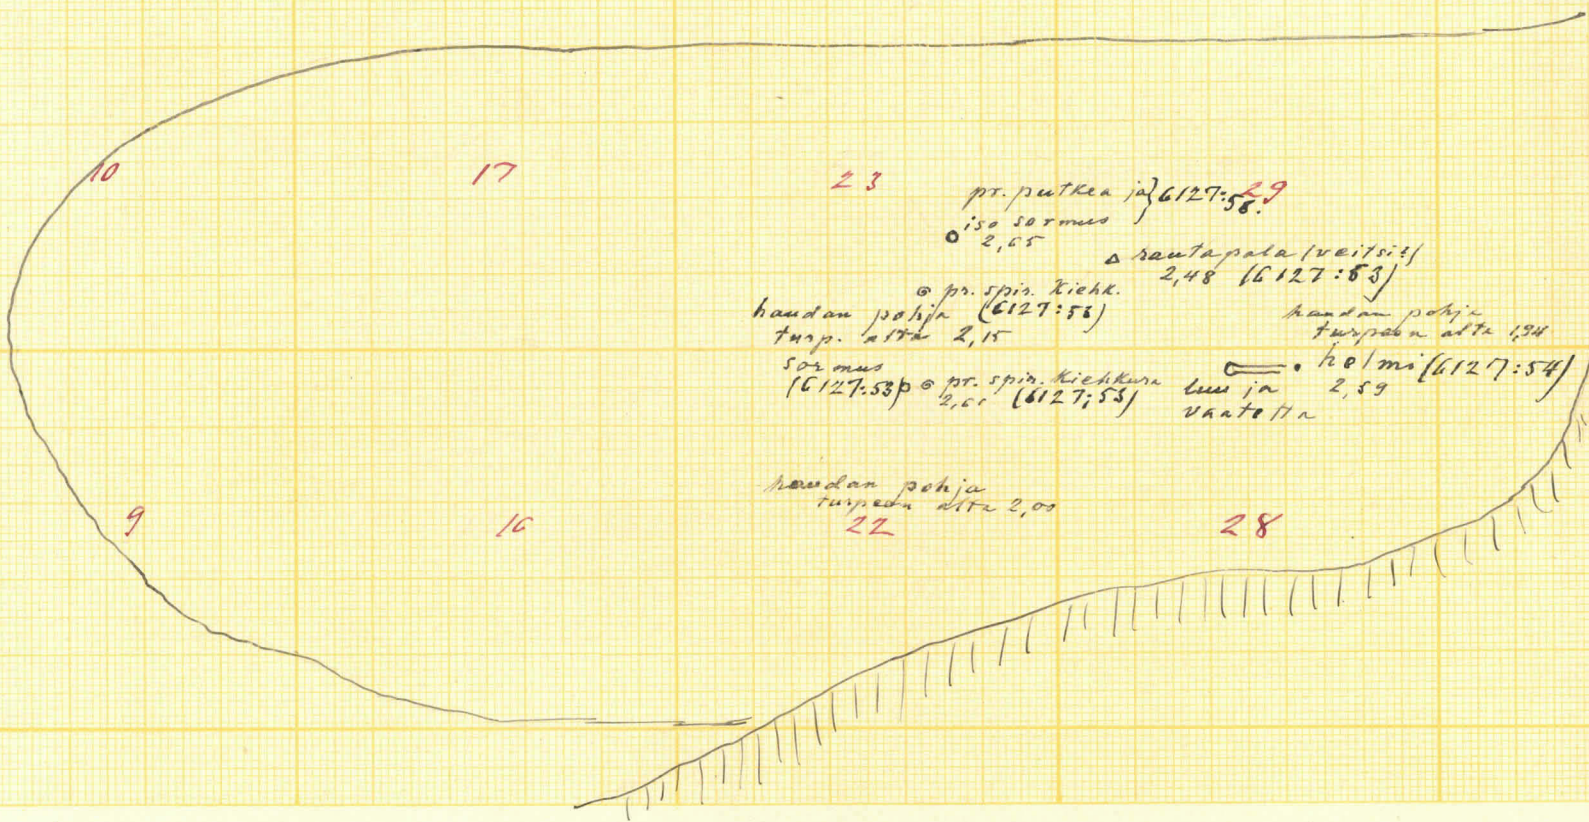 10
17
23
29
pr. putkea ja } 6127:58.
iso sormus
2,65
rautapala (veitsi?)
2,48 (6127:53)
pr. spir. Kiehk.
haudan pohja (6127:53)
turp. alta 2,15
haudan pohja
turpeen alta 1,94
sormus
(6127:53)
pr. spir. Kiehkura
2,61 (6127:53)
luu ja
vaatetta
helmi (6127:54)
2,59
haudan pohja
turpeen alta 2,00
9
16
22
28